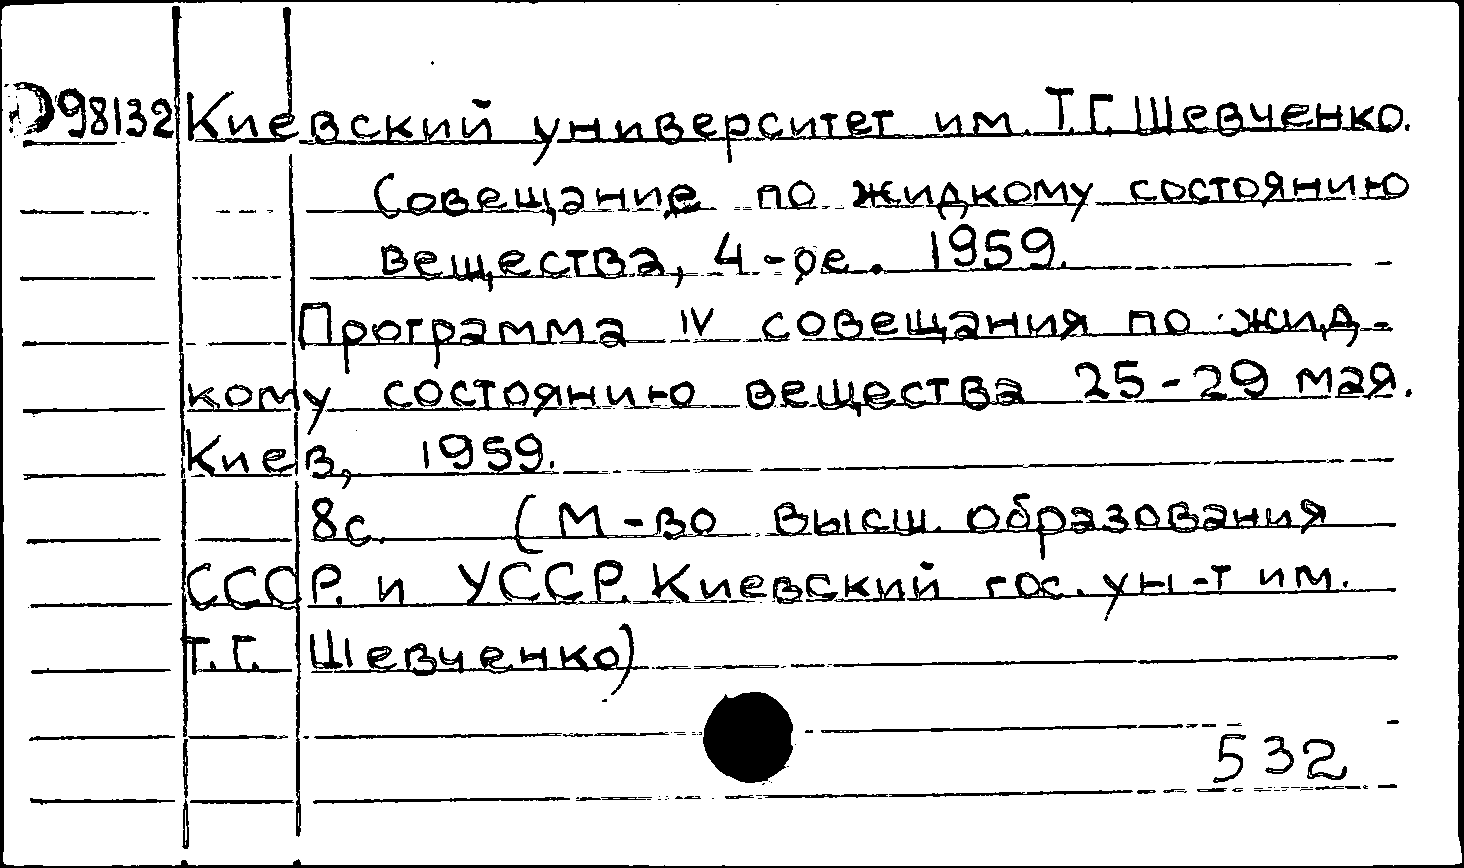 D98132 Киевский университет им. Т.Г. Шевченко.
Совещание по жидкому состоянию
вещества, 4-ое. 1959.
Программа IV совещания по жид-
кому состоянию вещества 25-29 мая.
Киев, 1959.
8с. (М-во высш. образования
СССР. и УССР. Киевский гос. ун-т им.
Т.Г. Шевченко)
532